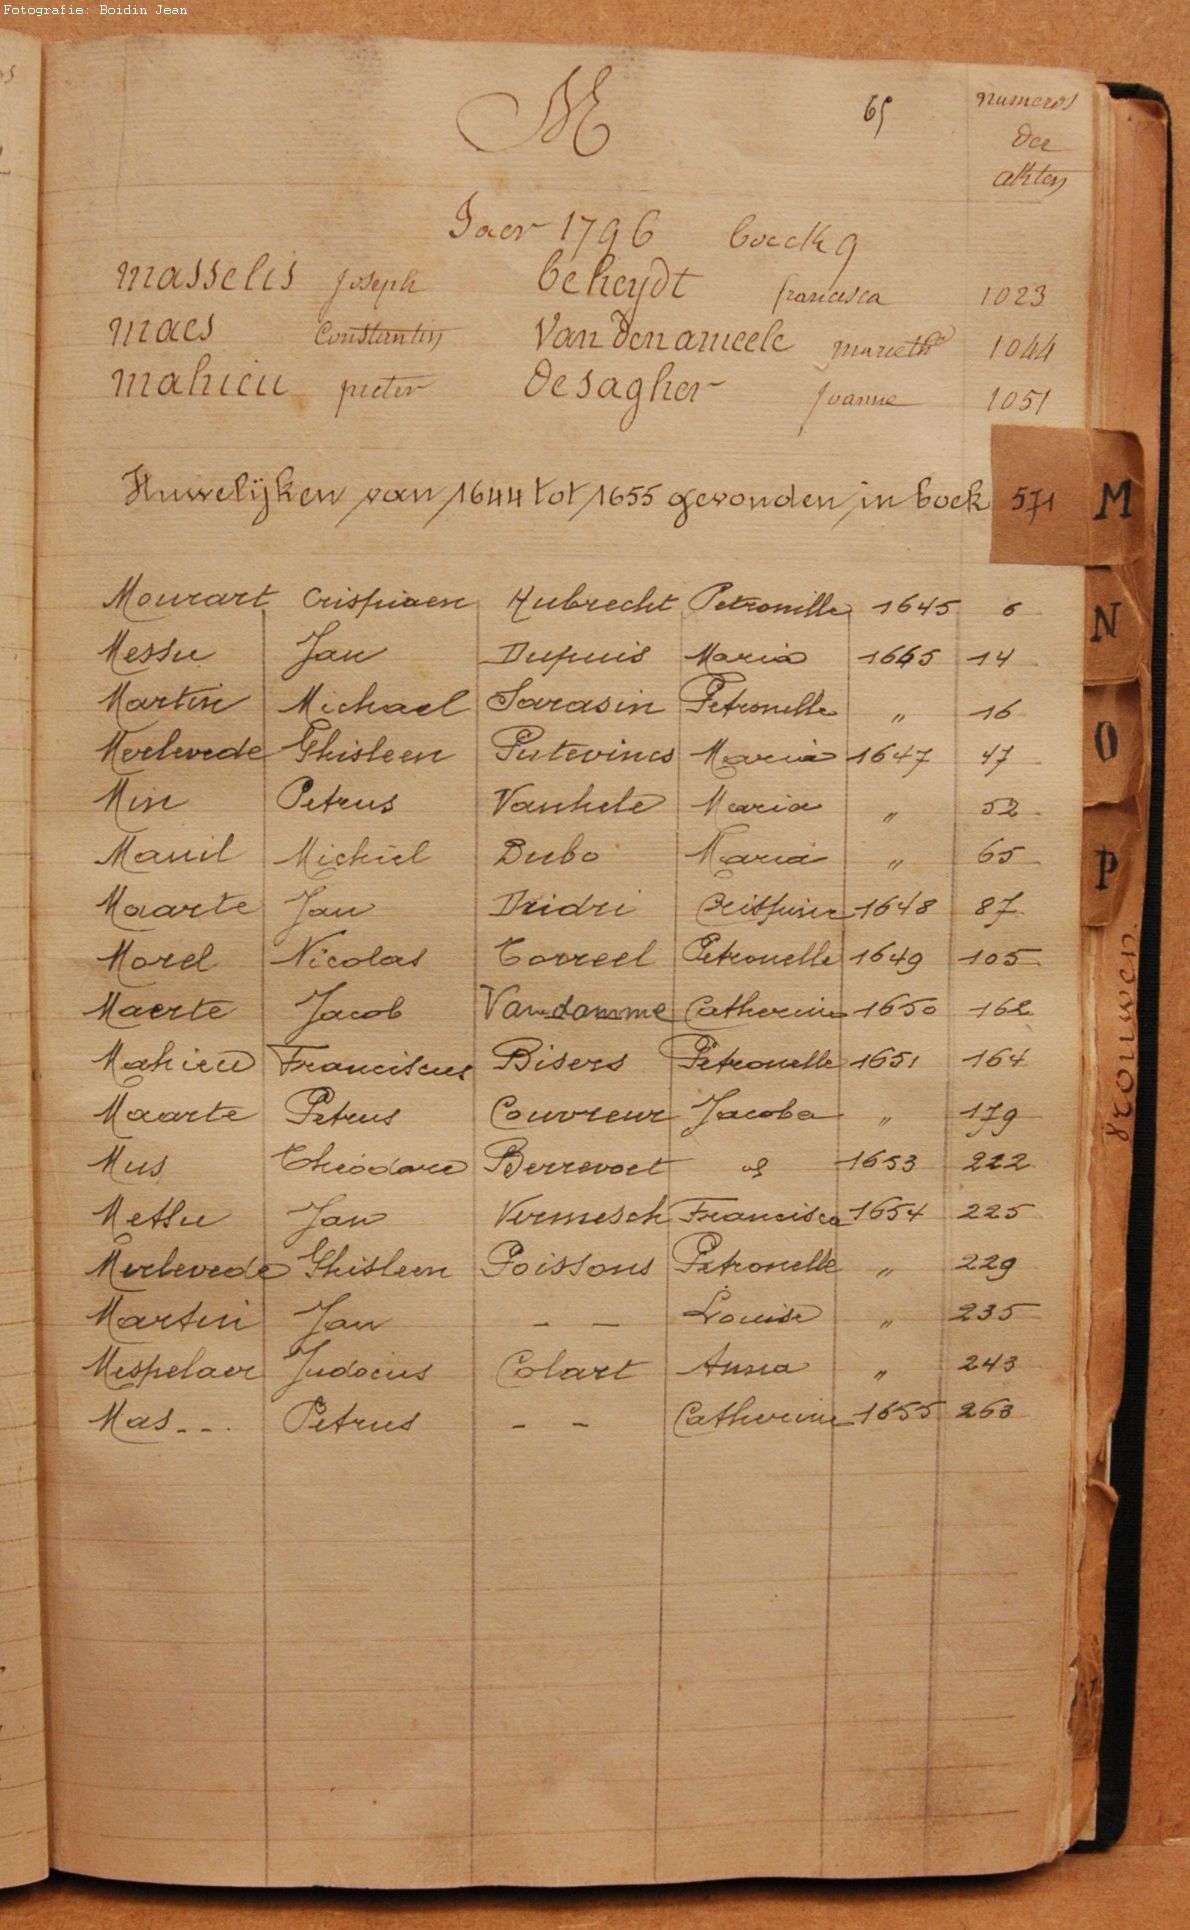 Fotografie: Boidin Jean
M 65 numeros
der
akten
Jaer 1796 boeck 9
masselis joseph beheydt francisca 1023
maes Constantin Van Den ameele marieth 1044
mahieu pieter de sagher joanne 1051
Huwelijken van 1644 tot 1655 gevonden in boek 571
Mourart Crispiaen Hubrecht Petronille 1645 6
Messu Jan Dupuis Maria 1645 14
Martin Michael Sarasin Petronelle " 16
Merlevede Ghisleen Putevincs Maria 1647 47
Min Petrus Vanhele Maria " 52
Mauil Michiel Dubo Maria " 65
Maarte Jan Dridri Crispine 1648 87
Morel Nicolas Correel Petronelle 1649 105
Maerte Jacob Vandamme Catherine 1650 162
Mahieu Franciscus Bisers Petronelle 1651 164
Maarte Petrus Couvreur Jacoba " 179
Mus Theodore Berrevoet 1653 222
Metsu Jan Vermesch Francisca 1654 225
Merlevede Ghisleen Poissons Petronelle " 229
Martin Jan - - Louise " 235
Mespelaer Judocus Colart Anna " 243
Mas - - . Petrus - - Catherine 1655 263
M
N
O
P
vrouwen